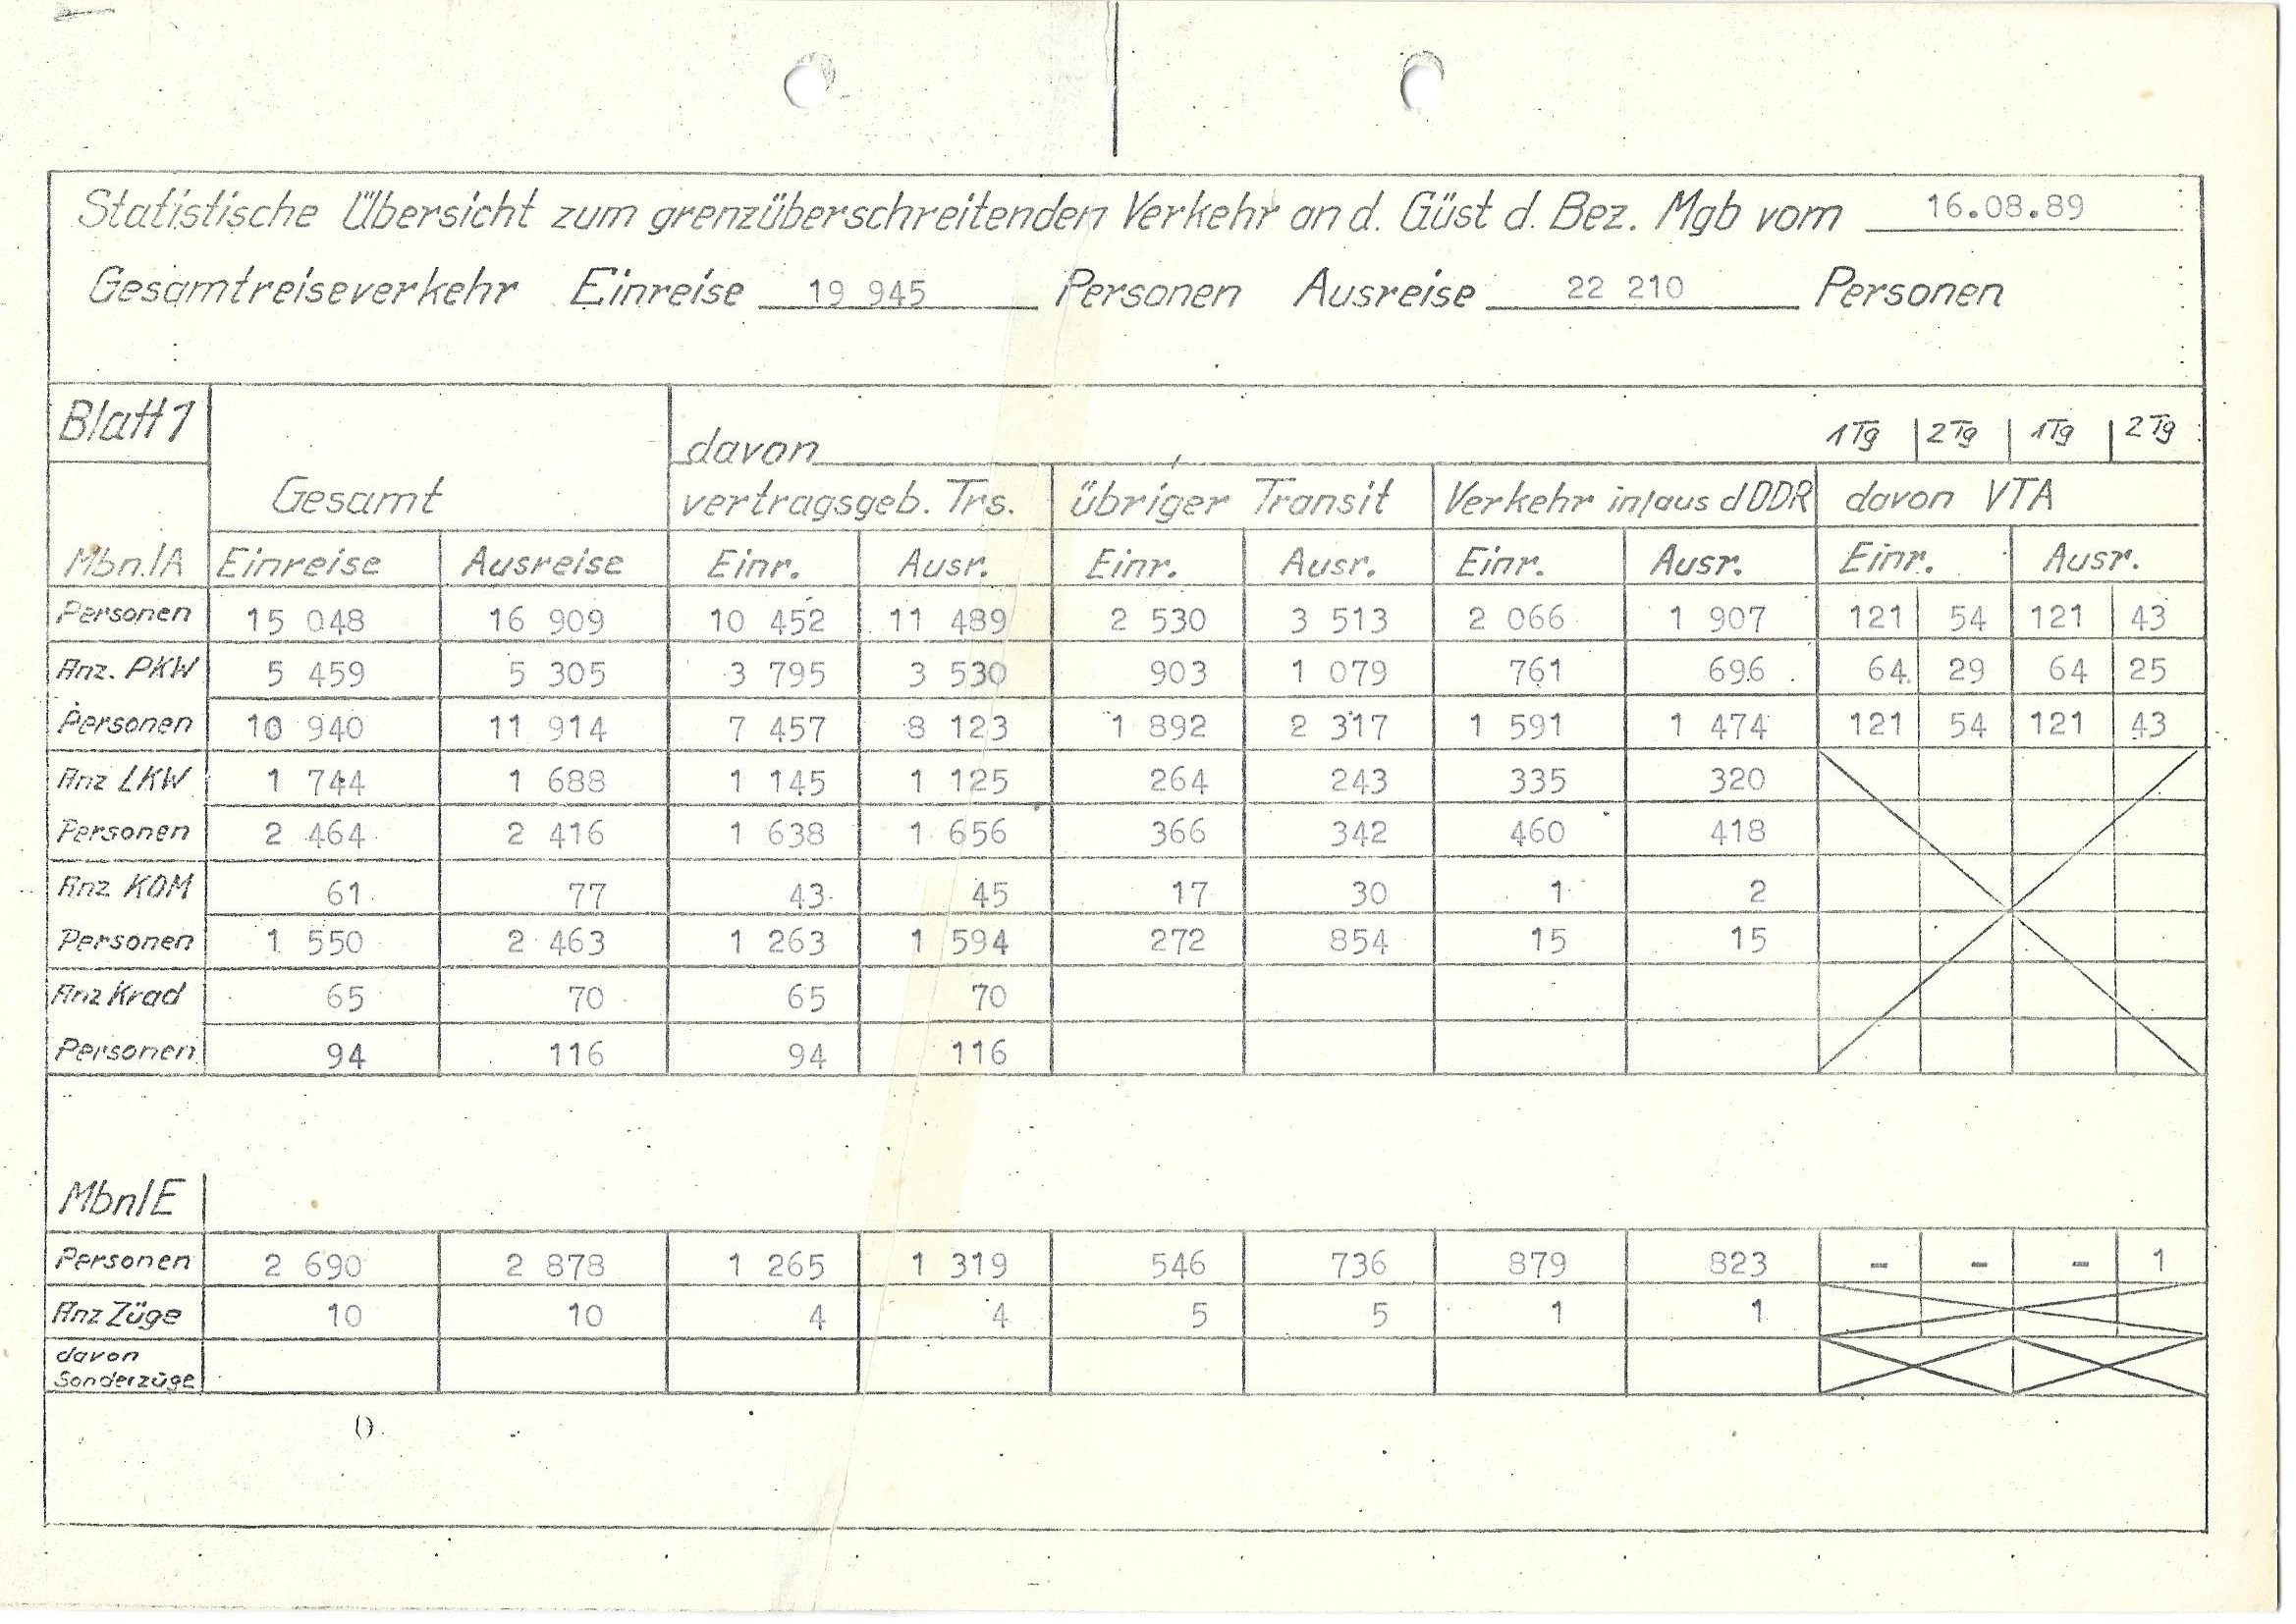 Statistische Übersicht zum grenzüberschreitenden Verkehr an d. Güst d. Bez. Mgb vom 16.08.89
Gesamtreiseverkehr Einreise 19 945 Personen Ausreise 22 210 Personen
Blatt 1 davon 1 Tg 2 Tg 1 Tg 2 Tg
Gesamt vertragsgeb. Trs. übriger Transit Verkehr in/aus d DDR davon VTA
Mbn./A Einreise Ausreise Einr. Ausr. Einr. Ausr. Einr. Ausr. Einr. Ausr.
Personen 15 048 16 909 10 452 11 489 2 530 3 513 2 066 1 907 121 54 121 43
Anz. PKW 5 459 5 305 3 795 3 530 903 1 079 761 696 64 29 64 25
Personen 10 940 11 914 7 457 8 123 1 892 2 317 1 591 1 474 121 54 121 43
Anz LKW 1 744 1 688 1 145 1 125 264 243 335 320
Personen 2 464 2 416 1 638 1 656 366 342 460 418
Anz KOM 61 77 43 45 17 30 1 2
Personen 1 550 2 463 1 263 1 594 272 854 15 15
Anz Krad 65 70 65 70
Personen 94 116 94 116
Mbn/E
Personen 2 690 2 878 1 265 1 319 546 736 879 823 - - - 1
Anz Züge 10 10 4 4 5 5 1 1
davon
Sonderzüge